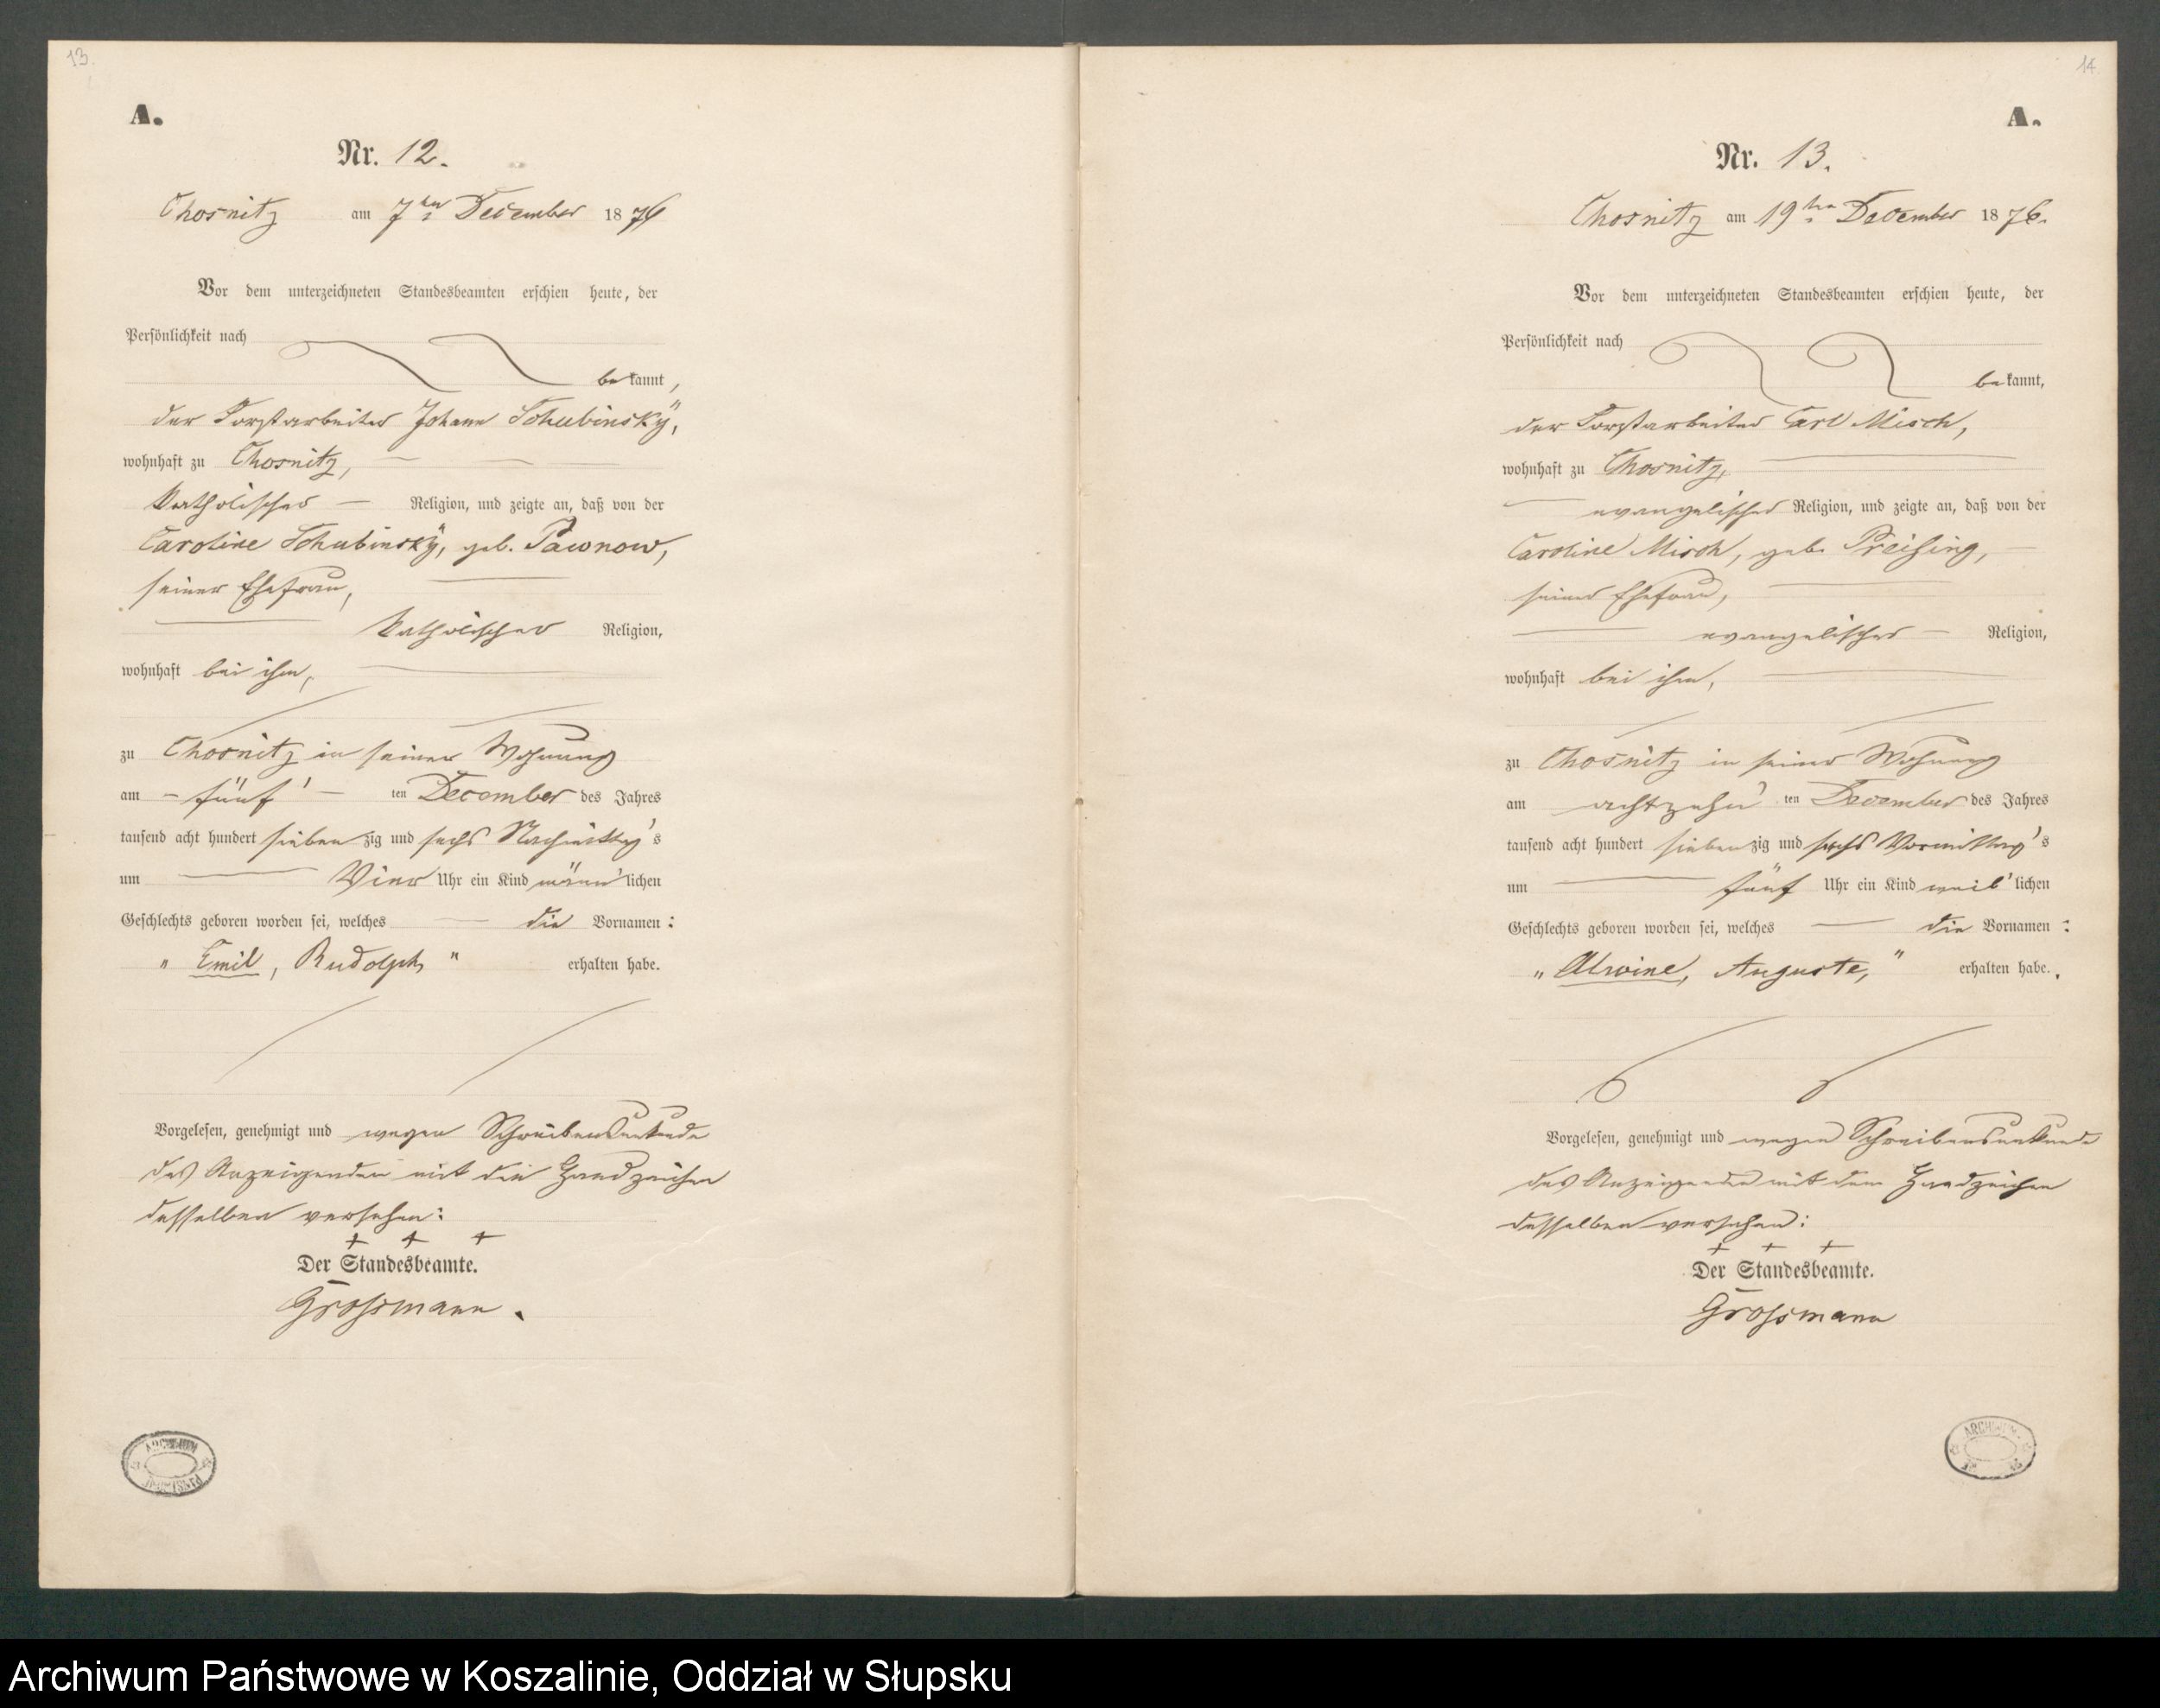 13.
A.
Nr. 12.
Chosnitz am 7ten December 1876
Vor dem unterzeichneten Standesbeamten erschien heute, der
Persönlichkeit nach
bekannt,
der Forstarbeiter Johann Schubinsky,
wohnhaft zu Chosnitz,
katholischer Religion, und zeigte an, daß von der
Caroline Schubinsky, geb. Pawnow,
seiner Ehefrau,
katholischer Religion,
wohnhaft bei ihm,
zu Chosnitz in seiner Wohnung
am fünf ten December des Jahres
tausend acht hundert sieben zig und sechs Nachmittag's
um Vier Uhr ein Kind männ'lichen
Geschlechts geboren worden sei, welches die Vornamen:
„Emil, Rudolph" erhalten habe.
Vorgelesen, genehmigt und wegen Schreibensunkunde
des Anzeigenden mit den Handzeichen
desselben versehen:
+ + +
Der Standesbeamte.
Grossmann.
14
A.
Nr. 13.
Chosnitz am 19ten December 1876.
Vor dem unterzeichneten Standesbeamten erschien heute, der
Persönlichkeit nach
bekannt,
der Forstarbeiter Carl Misch,
wohnhaft zu Chosnitz,
evangelischer Religion, und zeigte an, daß von der
Caroline Misch, geb. Preising,
seiner Ehefrau,
evangelischer Religion,
wohnhaft bei ihm,
zu Chosnitz in seiner Wohnung
am achtzehn ten December des Jahres
tausend acht hundert sieben zig und sechs Vormittag's
um fünf Uhr ein Kind weib'lichen
Geschlechts geboren worden sei, welches die Vornamen:
„Alwine, Auguste," erhalten habe.
Vorgelesen, genehmigt und wegen Schreibensunkunde
des Anzeigenden mit dem Handzeichen
desselben versehen:
+ + +
Der Standesbeamte.
Grossmann
Archiwum Państwowe w Koszalinie, Oddział w Słupsku